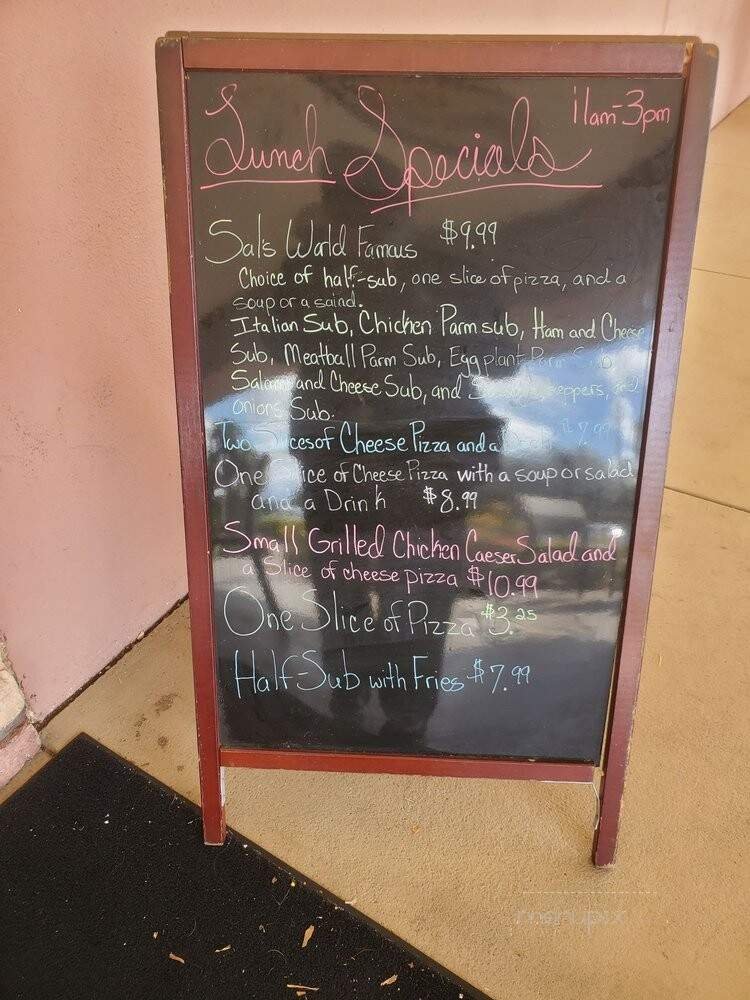 11am-3pm
Lunch Specials
Sal's World Famous $9.99
Choice of half-sub, one slice of pizza, and a
soup or a salad.
Italian Sub, Chicken Parm sub, Ham and Cheese
Sub, Meatball Parm Sub, Eggplant Parm Sub,
Salami and Cheese Sub, and Sausage, peppers, and
onions Sub.
Two Slices of Cheese Pizza and a $7.99
One Slice of Cheese Pizza with a soup or salad
and a Drink $8.99
Small Grilled Chicken Caeser Salad and
a Slice of cheese pizza $10.99
One Slice of Pizza $3.25
Half-Sub with Fries $7.99
menupix